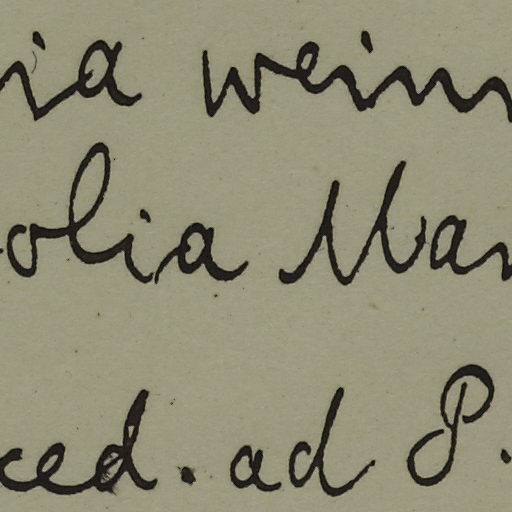 ia weinm
olia Man
ced. ad P.